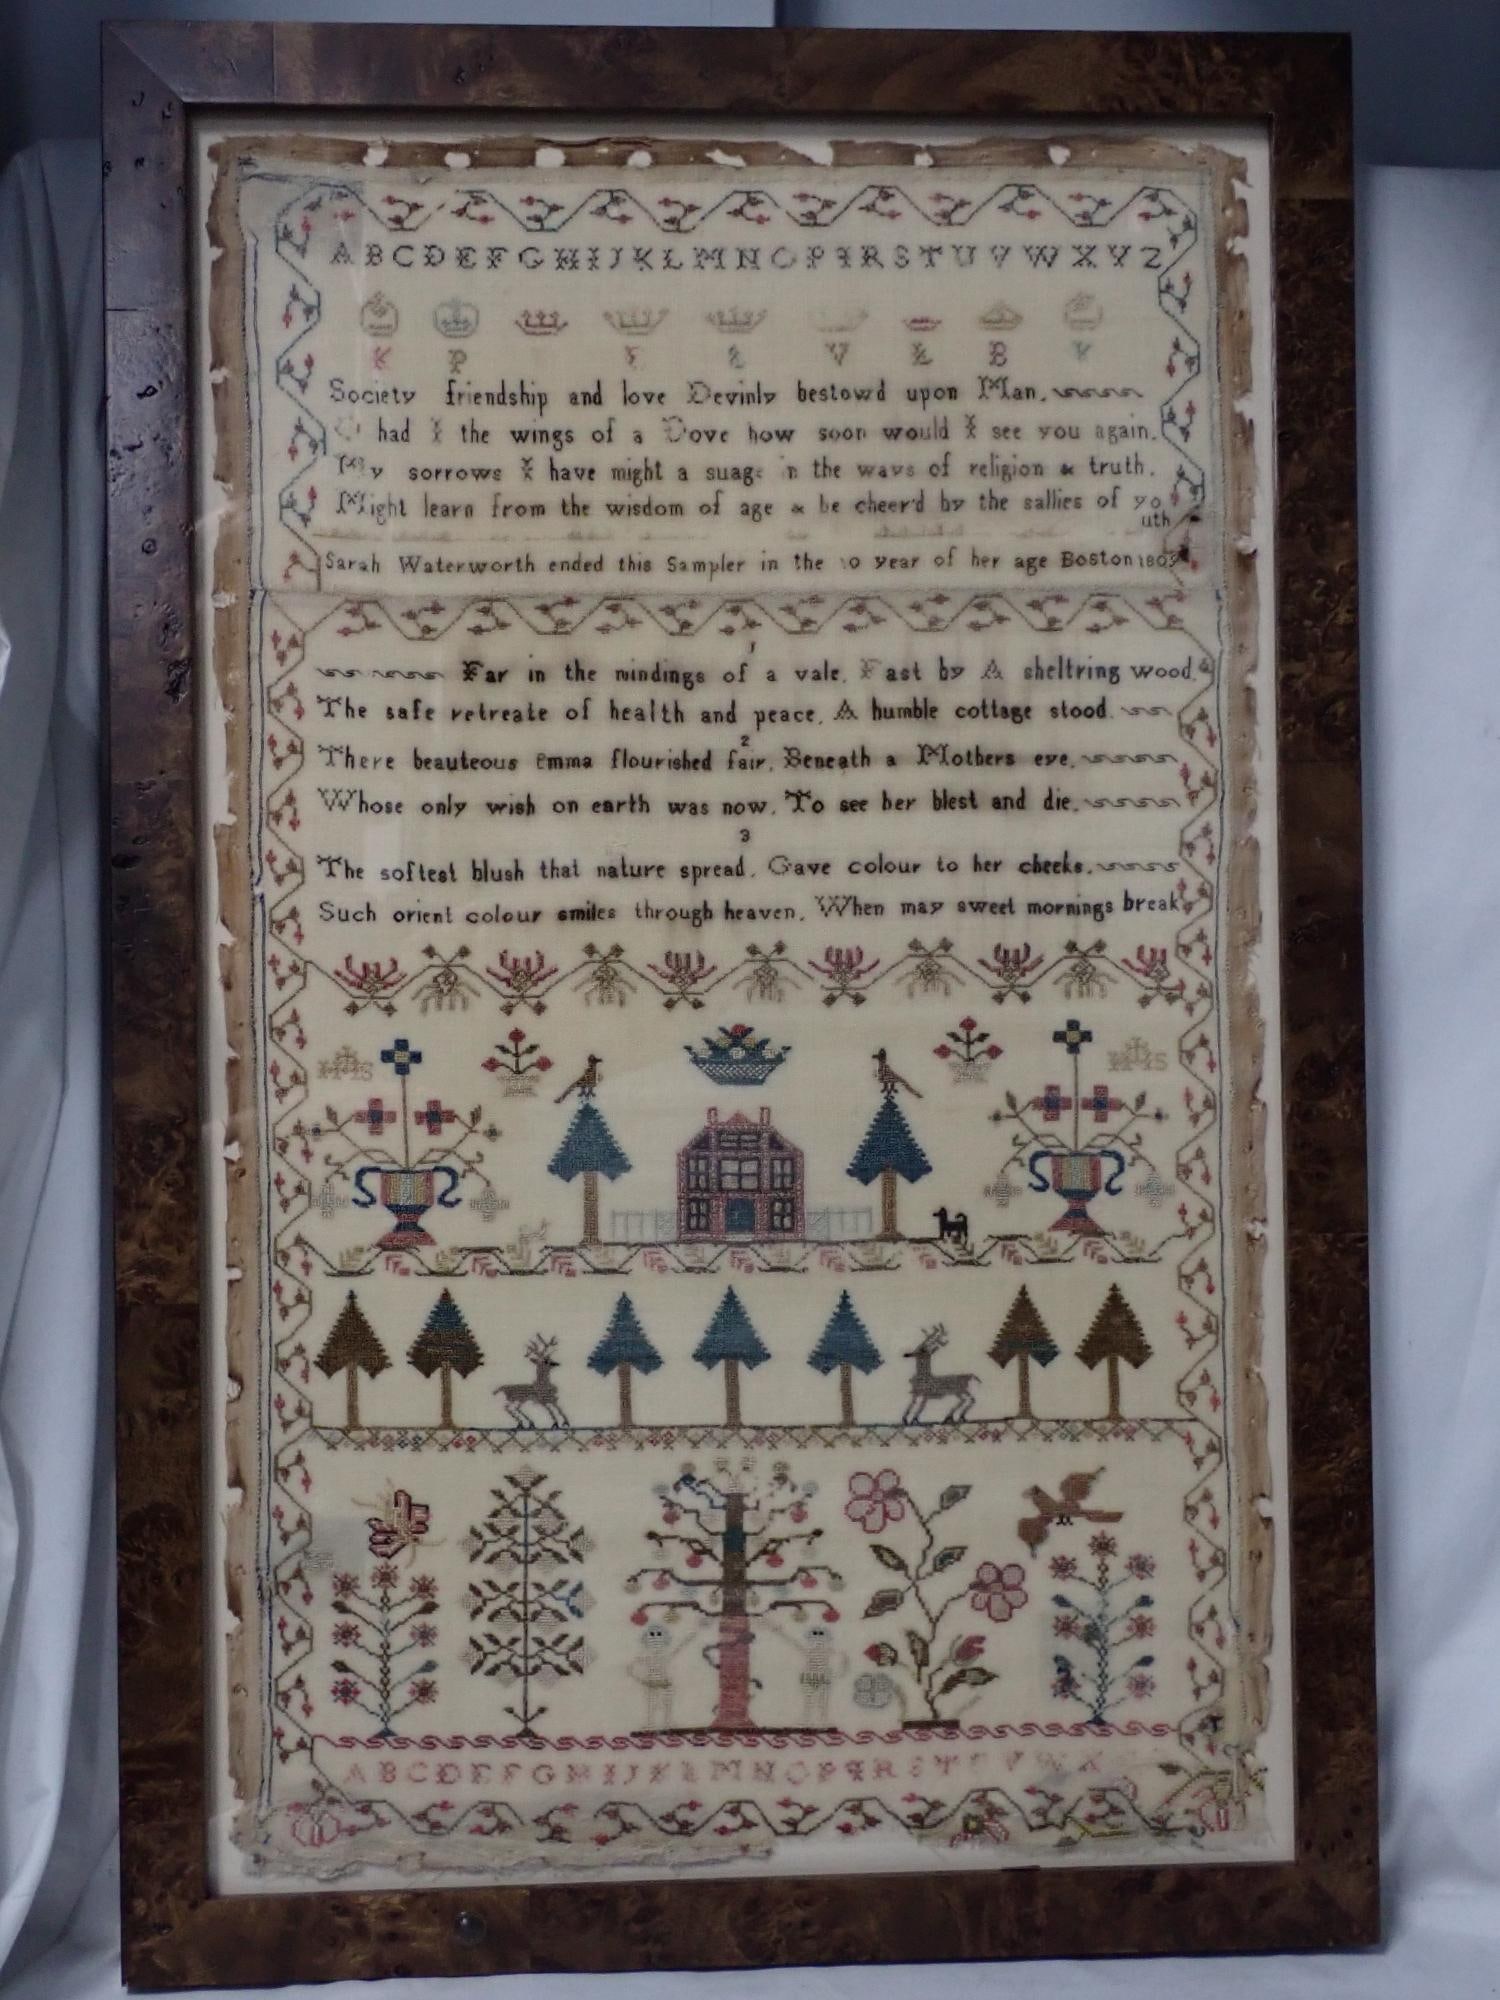 A B C D E F G H I J K L M N O P Q R S T U V W X Y Z
K P V L B
Society friendship and love Devinly bestowd upon Man.
O had I the wings of a Dove how soon would I see you again.
My sorrows I have might a suage in the ways of religion & truth.
Might learn from the wisdom of age & be cheer'd by the sallies of yo
uth
Sarah Waterworth ended this Sampler in the 10 year of her age Boston
1
Far in the windings of a vale. Fast by A sheltring wood.
The safe retreate of health and peace. A humble cottage stood.
2
There beauteous Emma flourished fair. Beneath a Mothers eye.
Whose only wish on earth was now. To see her blest and die.
3
The softest blush that nature spread. Gave colour to her cheeks.
Such orient colour smiles through heaven. When may sweet mornings break
IHS IHS
A B C D E F G H I J K L M N O P Q R S T U V W X